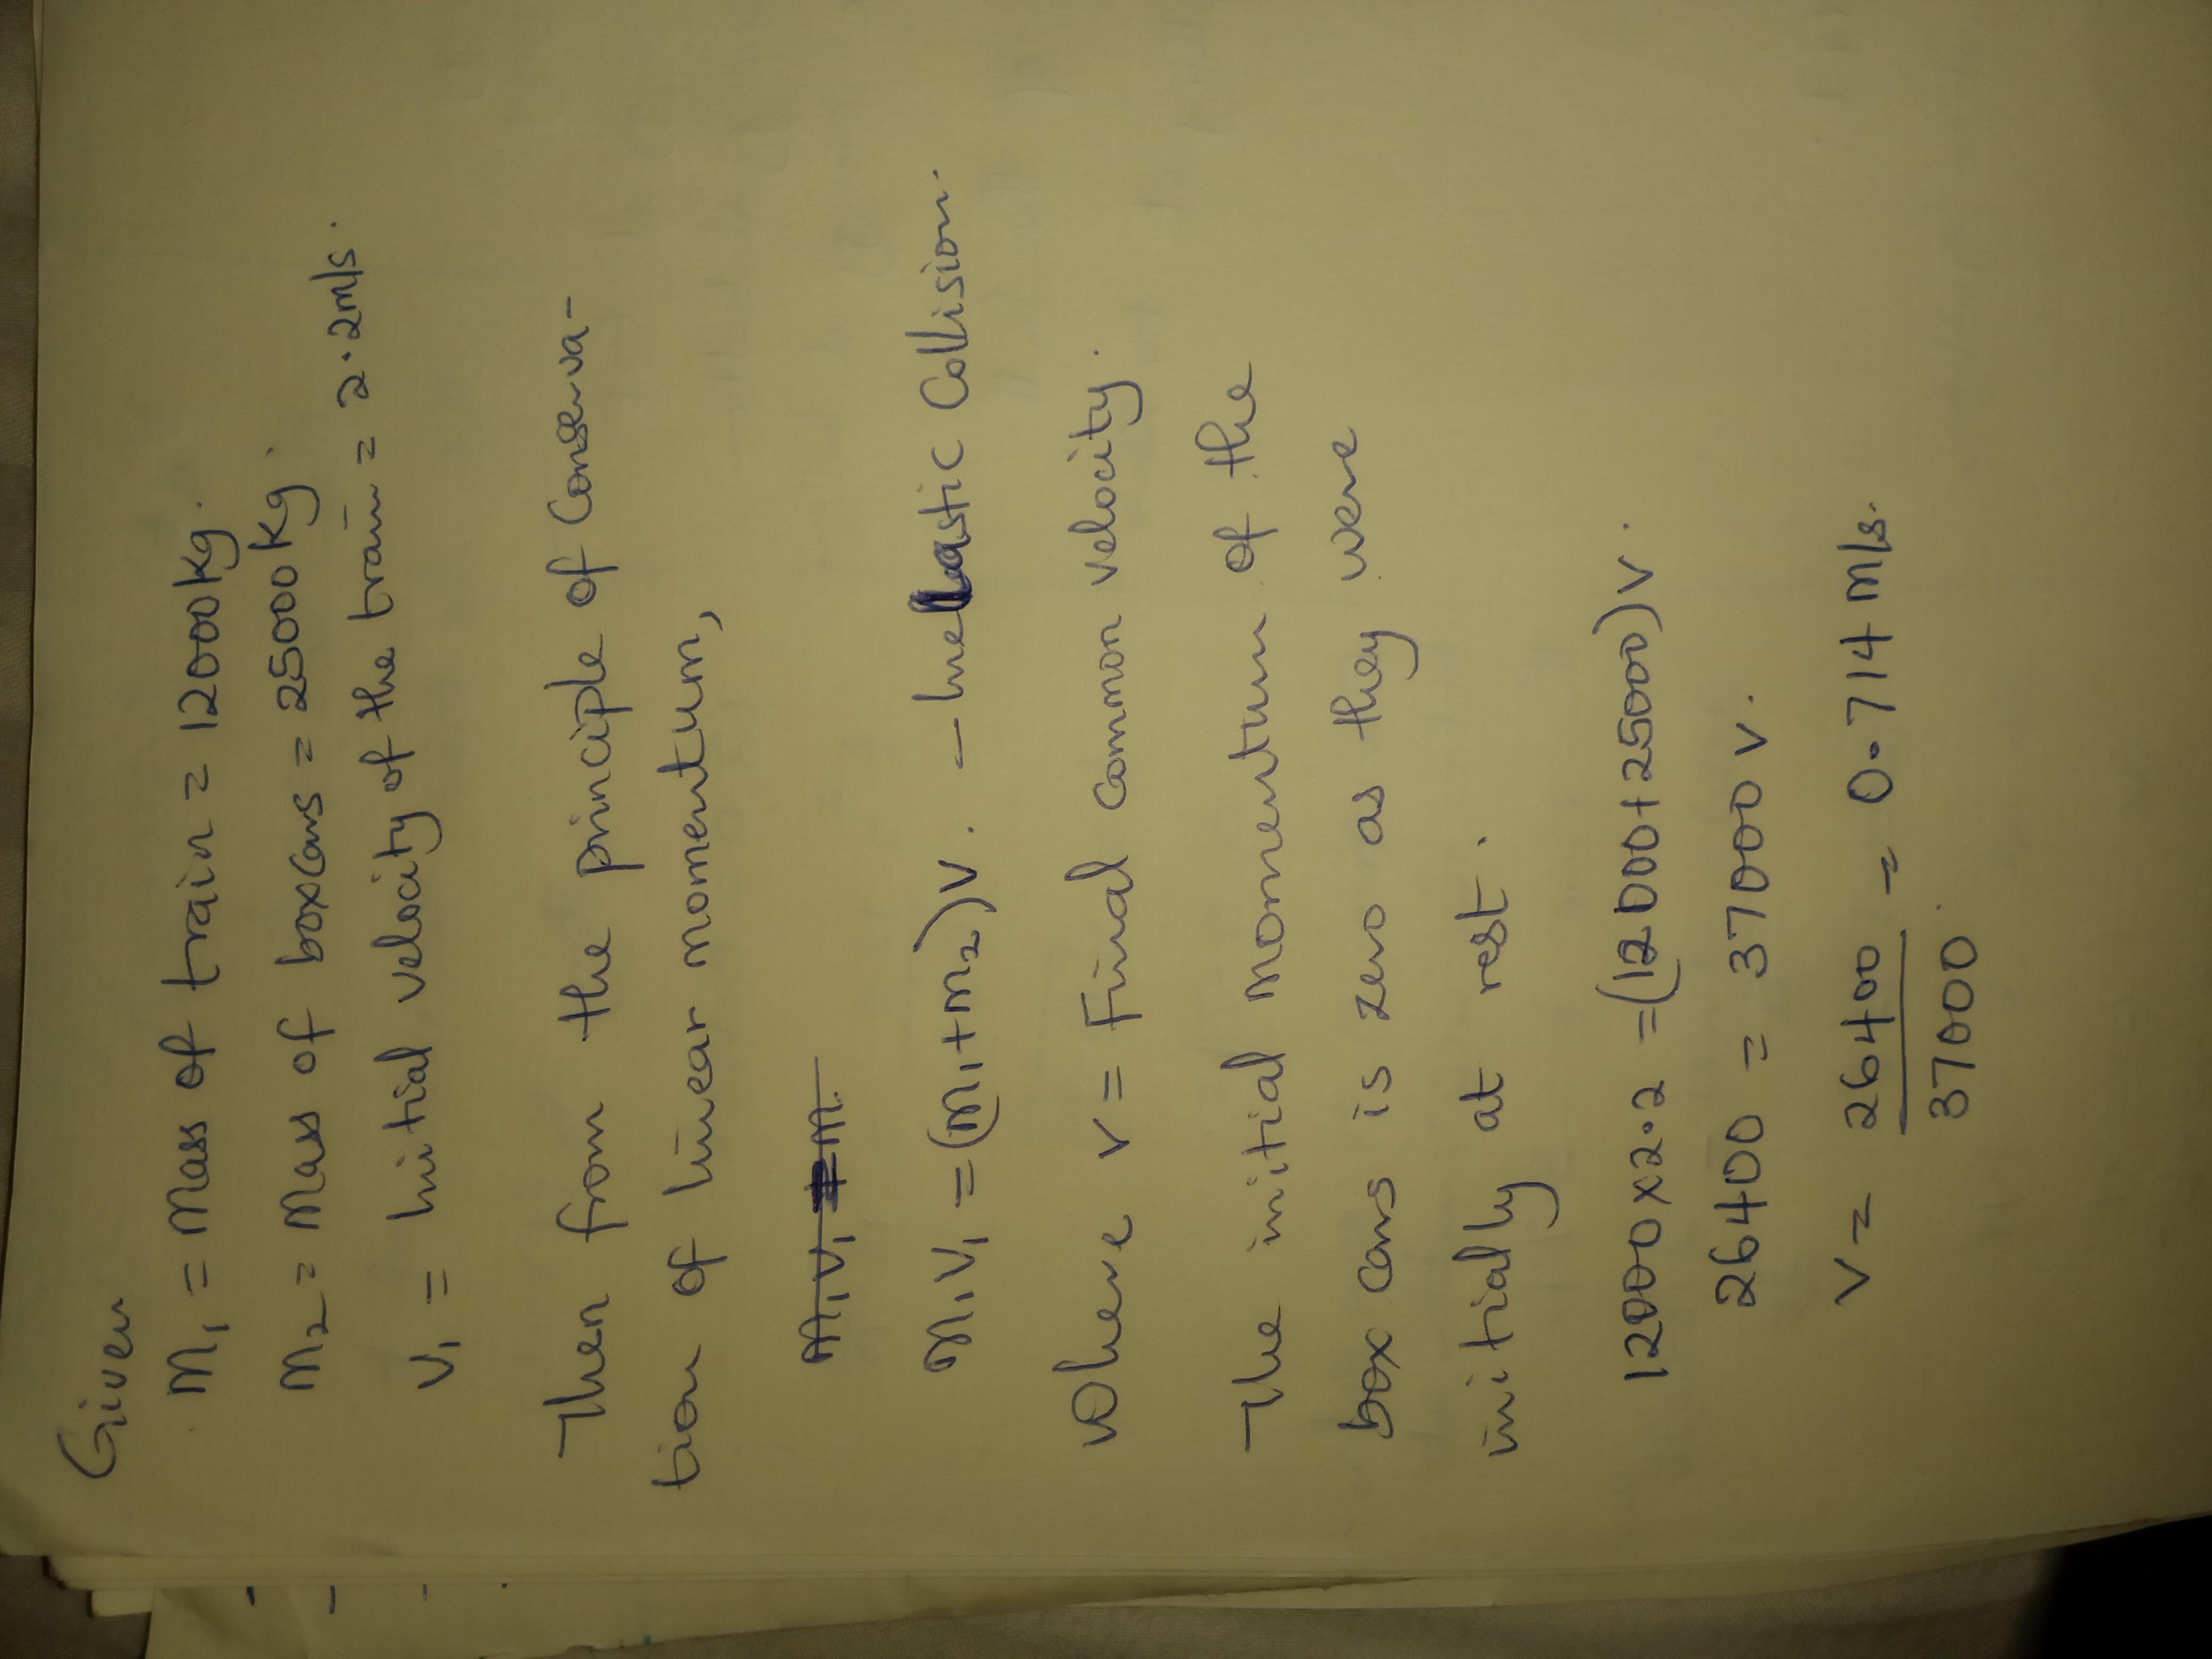 Given
M₁ = Mass of train = 12000kg.
M₂ = Mass of boxcars = 25000kg.
V₁ = Initial velocity of the train = 2.2m/s.
Then from the principle of Conserva-
tion of linear momentum,
M₁V₁ = M
M₁V₁ = (M₁+M₂)V. - Inelastic Collision.
Where V = Final Common velocity.
The initial momentum of the
box cars is zero as they were
initially at rest.
12000×2.2 = (12000+25000)V.
26400 = 37000V.
V = 26400/37000 = 0.714m/s.